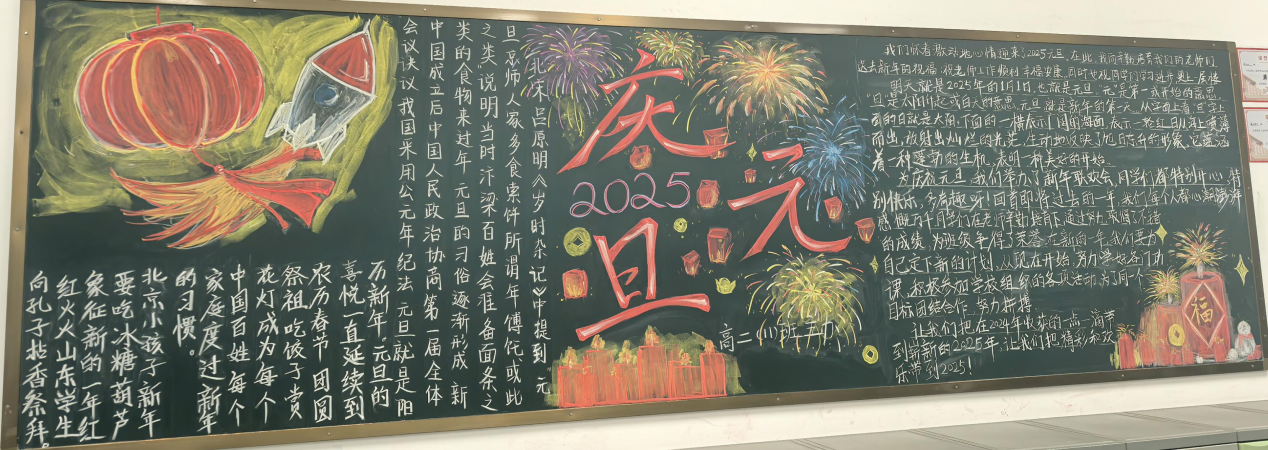 北宋吕原明《岁时杂记》中提到:元
旦京师人家多食索饼所谓年傅饦或此
之类说明当时汴梁百姓会准备面条之
类的食物来过年 元旦的习俗逐渐形成 新
中国成立后中国人民政治协商第一届全体
会议决议我国采用公元年纪法 元旦就是阳
历新年。元旦的
喜悦一直延续到
农历春节 团圆
祭祖 吃饺子 赏
花灯成为每个
中国百姓每个
家庭度过新年
的习惯。
北京小孩子新年
要吃冰糖葫芦
象征新的一年红
红火火山东学生
向孔子拈香祭拜。
庆
元
2025
旦
高二
我们怀着激动地心情迎来了2025元旦,在此,我向亲爱的老师们
送去新年的祝福,祝老师工作顺利幸福安康,同时也祝同学们学习进步更上一层楼
明天就是2025年的1月1日,也就是元旦,"元"是第一或开始的意思
"旦"是太阳升起或白天的意思,元旦就是新年的第一天,从字面上看"旦"字上
面的日就是太阳,下面的一横表示广阔的海面,表示一轮红日从海上喷薄
而出,放射出灿烂的光芒,生动地反映了旭日东升的形象,它蕴涵
着一种蓬勃的生机,表明一种美好的开始。
为庆祝元旦,我们举办了新年联欢会,同学们都特别开心,特
别快乐,多有趣呀!回首即将过去的一年,我们每个人都心潮澎湃
感慨万千,同学们在老师辛勤培育下,通过努力,取得了不错
的成绩,为班级争得了荣誉,在新的一年,我们要为
自己定下新的计划,从现在开始,努力学好各门功
课,积极参加学校组织的各项活动,为了同一个
目标团结合作,努力拼搏
让我们把在2024年收获的一点一滴带
到崭新的2025年,让我们把精彩和欢
乐带到2025!
福